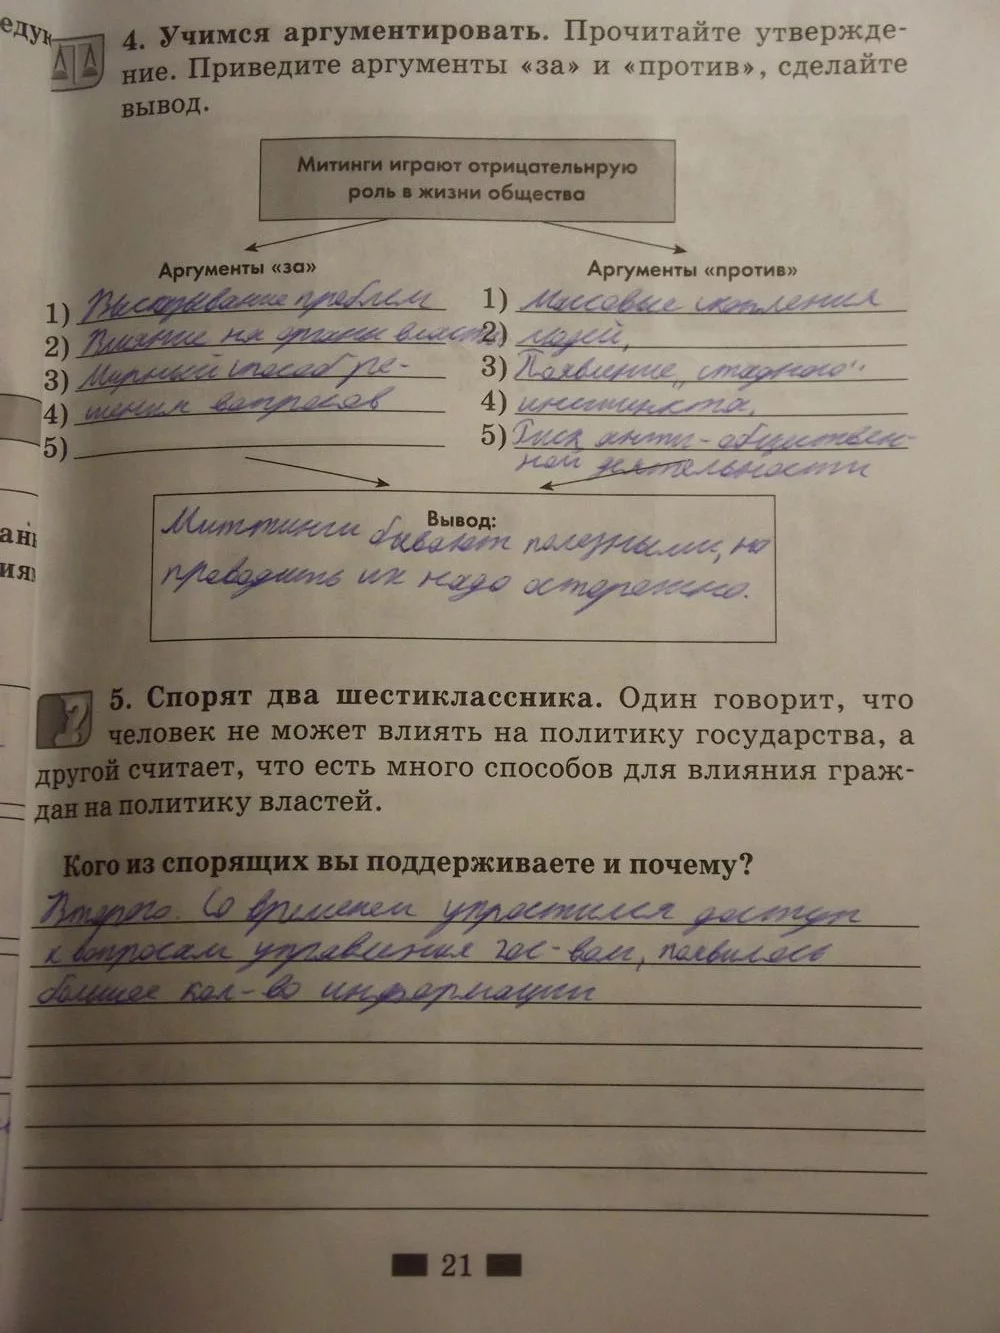 едук
4. Учимся аргументировать. Прочитайте утвержде-
ние. Приведите аргументы «за» и «против», сделайте
вывод.
Митинги играют отрицательнрую
роль в жизни общества
Аргументы «за»
1) Высказывание проблем
2) Влияние на органы власти
3) Мирный способ ре-
4) шения вопросов
5)
Аргументы «против»
1) Массовые скопления
2) людей,
3) Появление "стадного"
4) инстинкта,
5) Риск анти-обществен-
ной деятельности
Вывод:
Миттинги бывают полезными, но
проводить их надо осторожно.
5. Спорят два шестиклассника. Один говорит, что
человек не может влиять на политику государства, а
другой считает, что есть много способов для влияния граж-
дан на политику властей.
Кого из спорящих вы поддерживаете и почему?
Второго. Со временем упростился доступ
к вопросам управления гос-вом, появилось
большее кол-во информации
21